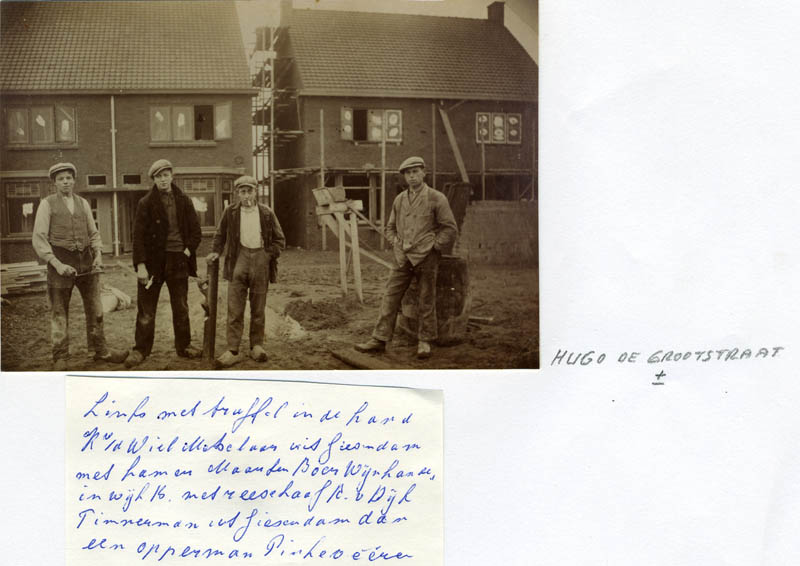 HUGO DE GROOTSTRAAT
±
Links met troffel in de hand
K v/d Wiel Metselaar uit Giesendam
met hamer Maarten Boer Wijnhande,
in wijk B. met reeschaaf K. v Dijk
Timmerman uit Giesendam dan
een opperman